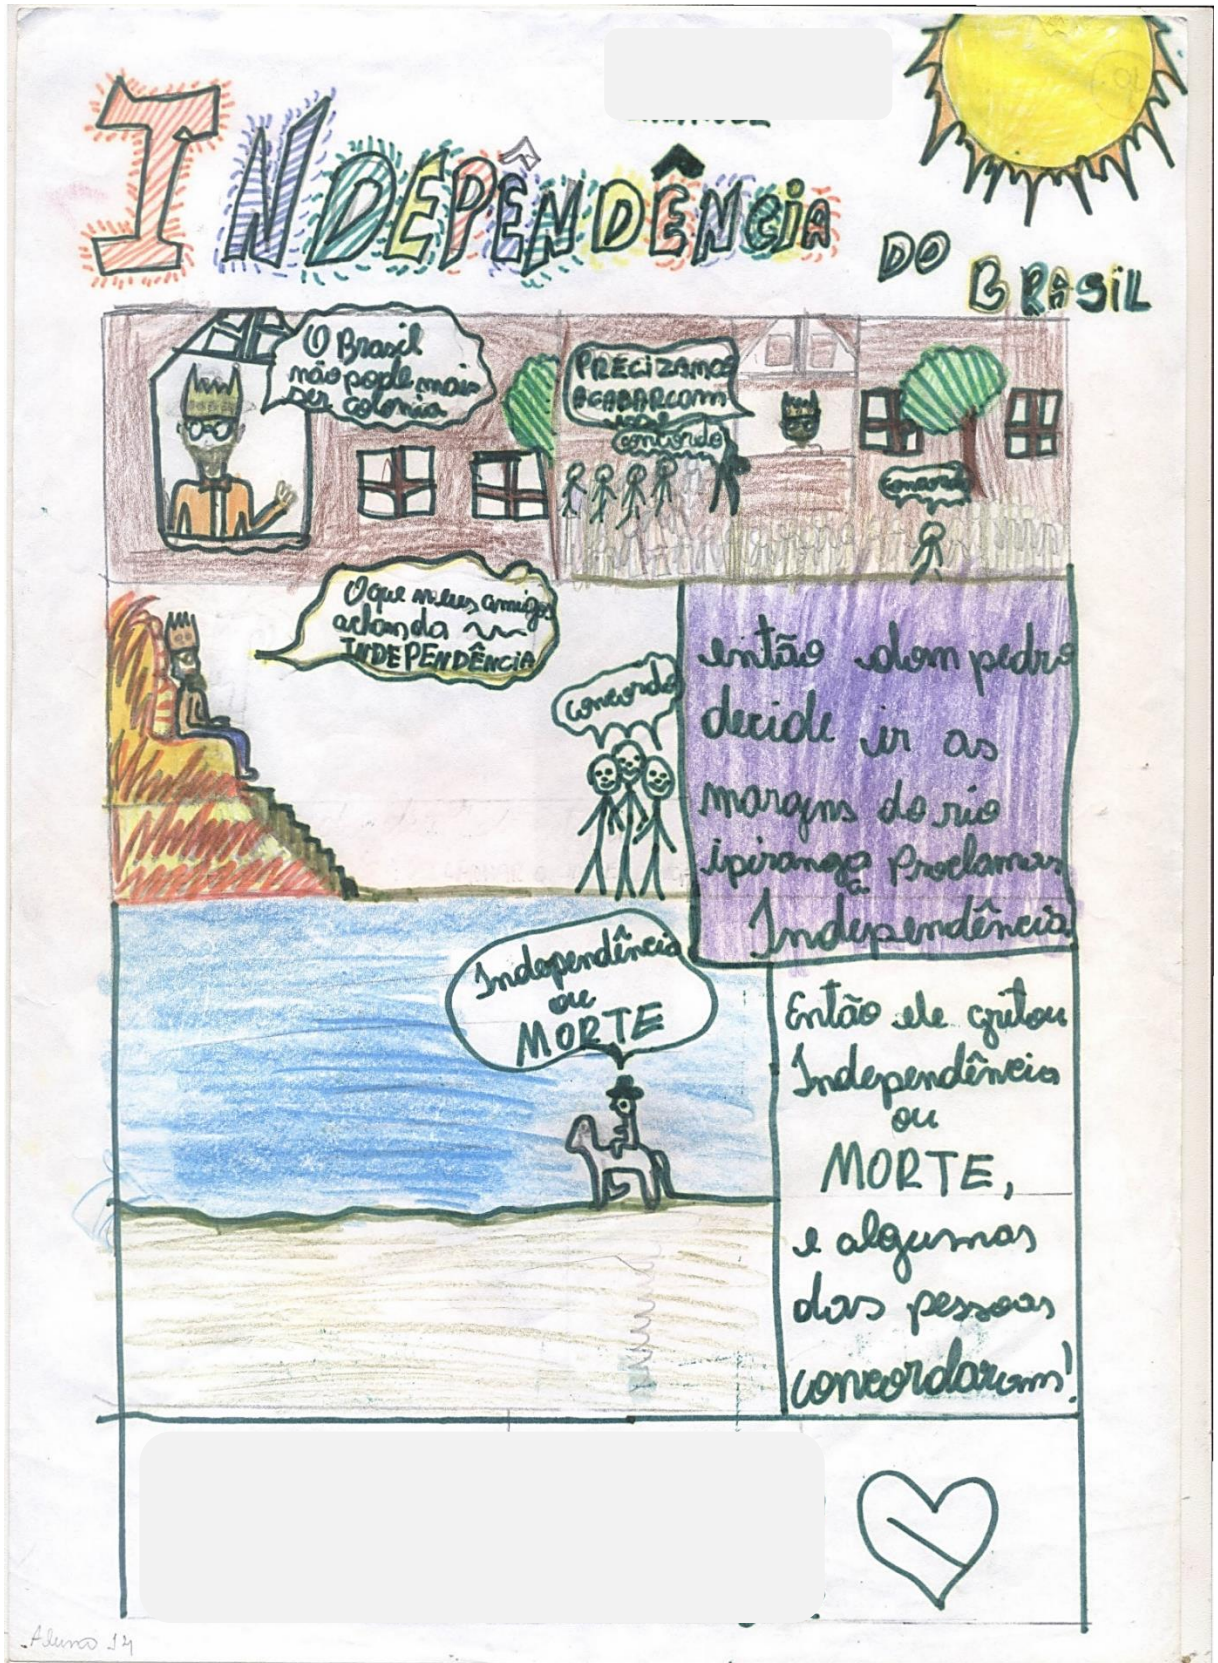 INDEPÊNDÊNCIA
DO BRASIL
O Brasil
não pode mais
ser colonia
PRECIZAMOS
ACABAR COM
concordo
concordo
O que meus amigos
acham da
INDEPENDÊNCIA
concordo
então dom pedro
decide ir as
margns do rio
ipiranga Proclamar
a
Independência
Independência
ou
MORTE
Então ele gritou
Independência
ou
MORTE,
e algumas
das pessoas
concordaram!
Aluno 14